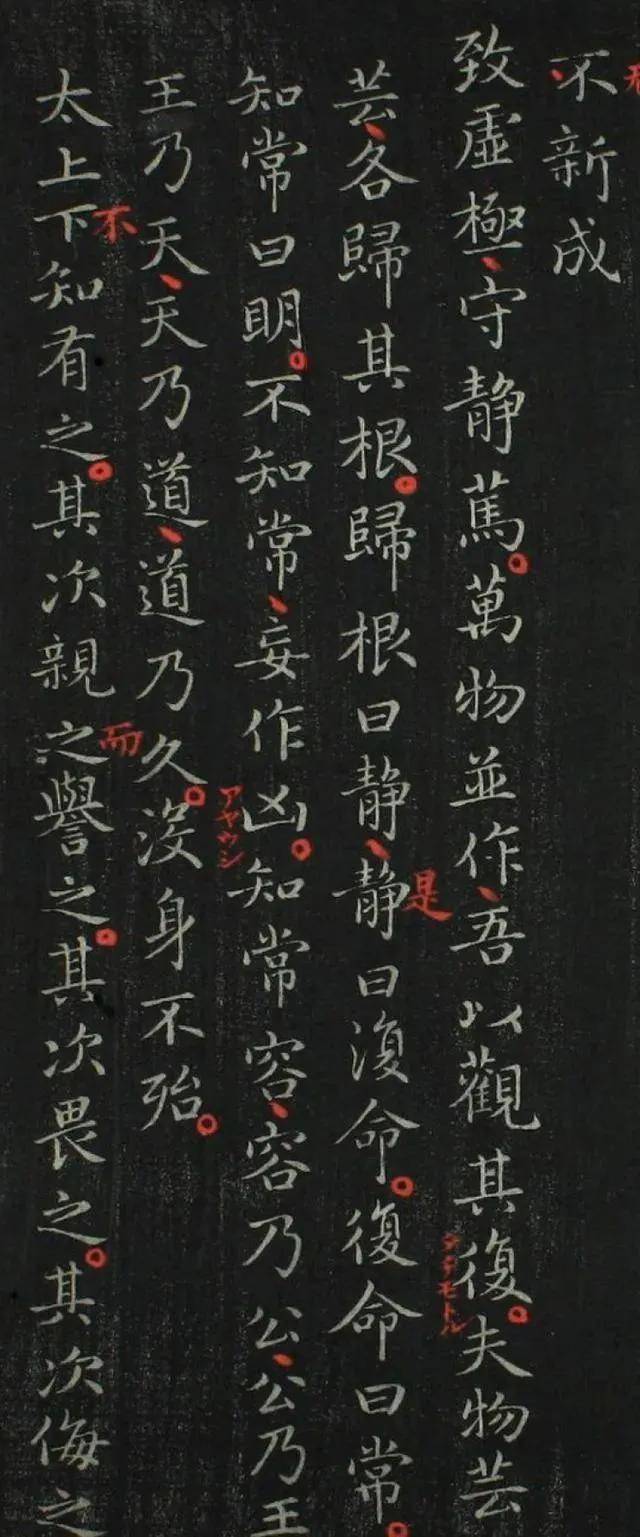 不新成
致虛極、守静篤。萬物並作、吾以觀其復。夫物芸
芸、各歸其根。歸根曰静、静曰復命。復命曰常。
是
知常曰明。不知常、妄作凶。知常容、容乃公、公乃王
王乃天、天乃道、道乃久。没身不殆。
アヤウシ
太上下知有之。其次親之譽之。其次畏之。其次侮之
不
而